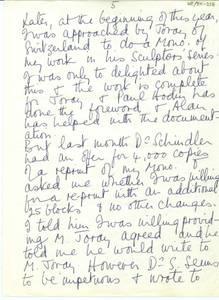 5
Later, at the beginning of this year,
I was approached by Joray of
Switzerland to do a Mono. of
my work in his Sculptors Series.
I was only to delighted about
this & the work is complete
for Joray & Paul Hodin has
done the foreword & Alan
has helped with the document
ation.
But last month Dr Schindler
had an offer for 4,000 copies
of a reprint of my Mono.
asked me whether I was willing
for a reprint with an additional
25 blocks & no other changes.
I told him I was willing provid-
ing M. Joray agreed and he
told me he would write to
M. Joray However Dr S. Seems
to be impetuous & wrote to